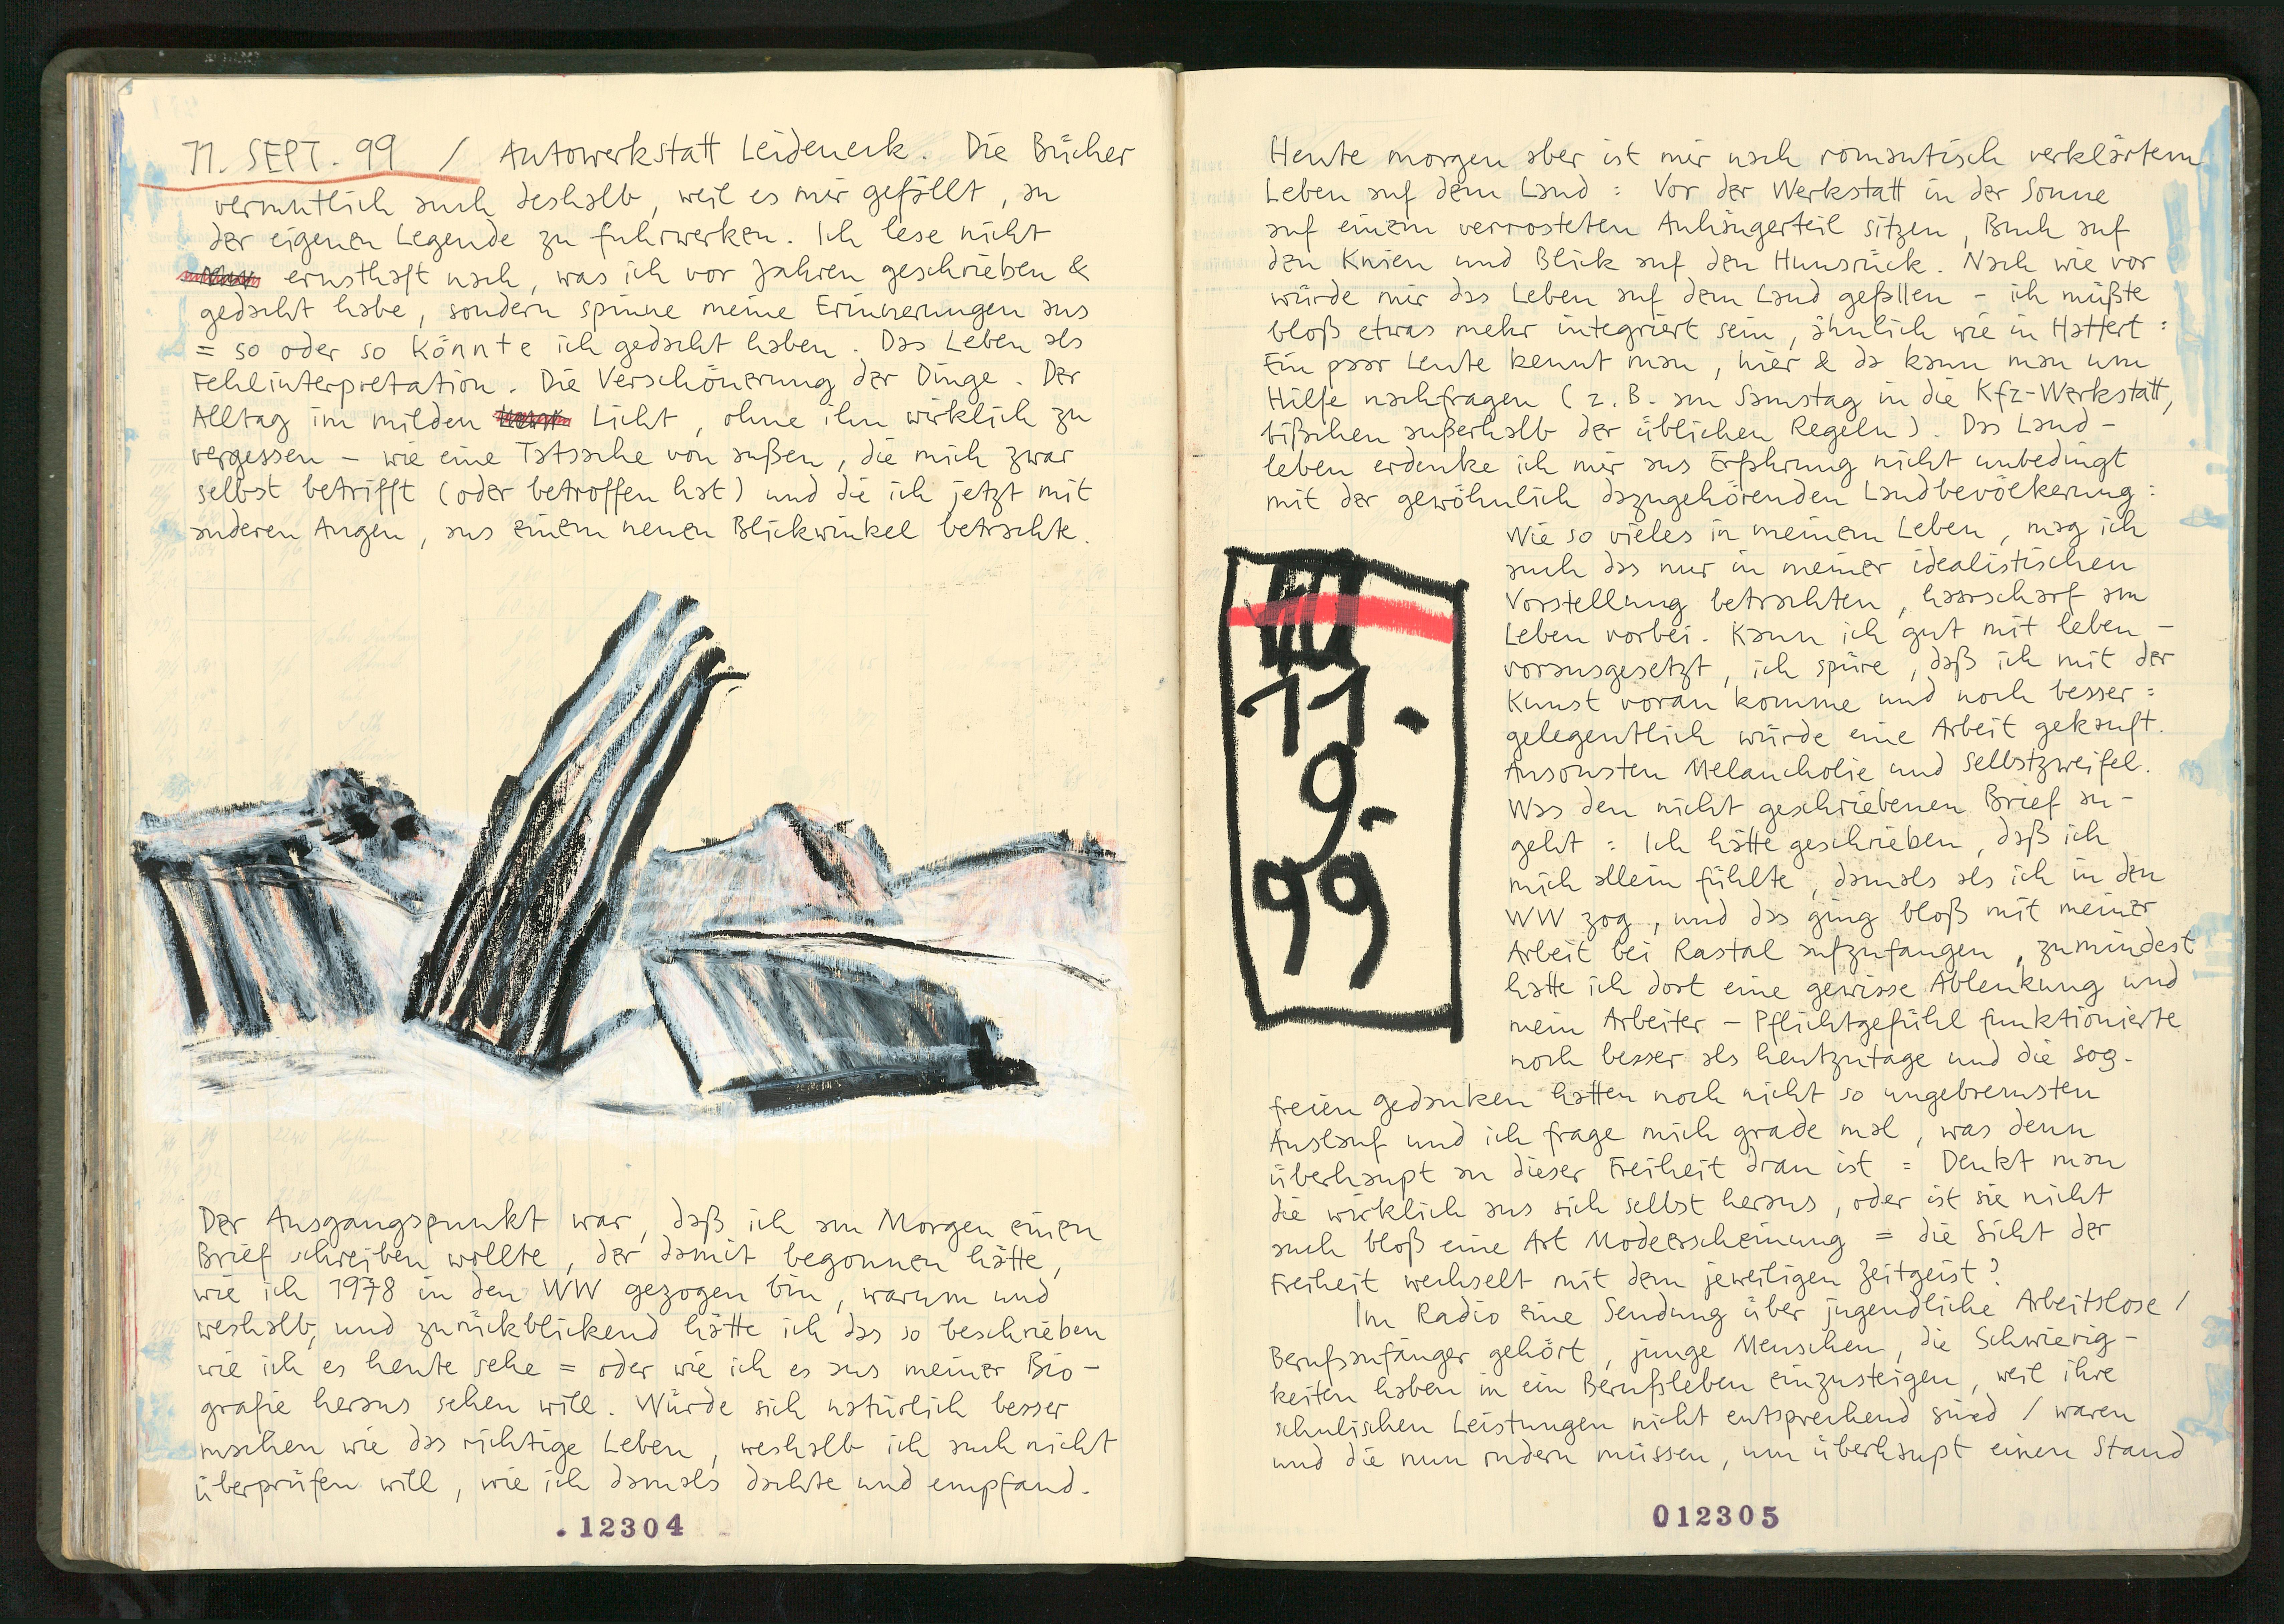 11. SEPT. 99 / Autowerkstatt Leideneck. Die Bücher
vermutlich auch deshalb, weil es mir gefällt, an
der eigenen Legende zu fuhrwerken. Ich lese nicht
ernsthaft nach, was ich vor Jahren geschrieben &
gedacht habe, sondern spinne meine Erinnerungen aus
= so oder so könnte ich gedacht haben. Das Leben als
Fehlinterpretation. Die Verschönerung der Dinge. Der
Alltag im milden Licht, ohne ihn wirklich zu
vergessen – wie eine Tatsache von außen, die mich zwar
selbst betrifft (oder betroffen hat) und die ich jetzt mit
anderen Augen, aus einem neuen Blickwinkel betrachte.
Der Ausgangspunkt war, daß ich am Morgen einen
Brief schreiben wollte, der damit begonnen hätte,
wie ich 1978 in den WW gezogen bin, warum und
weshalb, und zurückblickend hätte ich das so beschrieben
wie ich es heute sehe = oder wie ich es aus meiner Bio-
grafie heraus sehen will. Würde sich natürlich besser
machen wie das richtige Leben, weshalb ich auch nicht
überprüfen will, wie ich damals dachte und empfand.
.12304
Heute morgen aber ist mir nach romantisch verklärtem
Leben auf dem Land : Vor der Werkstatt in der Sonne
auf einem verrosteten Anhängerteil sitzen, Buch auf
den Knien und Blick auf den Hunsrück. Nach wie vor
würde mir das Leben auf dem Land gefallen – ich müßte
bloß etwas mehr integriert sein, ähnlich wie in Hattert :
Ein paar Leute kennt man, hier & da kann man um
Hilfe nachfragen (z.B. am Samstag in die Kfz-Werkstatt,
bißchen außerhalb der üblichen Regeln). Das Land-
leben erdenke ich mir aus Erfahrung nicht unbedingt
mit der gewöhnlich dazugehörenden Landbevölkerung :
Wie so vieles in meinem Leben, mag ich
auch das nur in meiner idealistischen
Vorstellung betrachten, haarscharf am
Leben vorbei. Kann ich gut mit leben –
vorausgesetzt, ich spüre, daß ich mit der
Kunst voran komme und noch besser :
gelegentlich würde eine Arbeit gekauft.
Ansonsten Melancholie und Selbstzweifel.
Was den nicht geschriebenen Brief an-
geht : Ich hätte geschrieben, daß ich
mich allein fühlte, damals als ich in den
WW zog, und das ging bloß mit meiner
Arbeit bei Rastal aufzufangen, zumindest
hatte ich dort eine gewisse Ablenkung und
mein Arbeiter – Pflichtgefühl funktionierte
noch besser als heutzutage und die sog.
freien Gedanken hatten noch nicht so ungebremsten
Auslauf und ich frage mich grade mal, was denn
überhaupt an dieser Freiheit dran ist : Denkt man
die wirklich aus sich selbst heraus, oder ist sie nicht
auch bloß eine Art Modeerscheinung = die Sicht der
Freiheit wechselt mit dem jeweiligen Zeitgeist?
Im Radio eine Sendung über jugendliche Arbeitslose /
Berufsanfänger gehört, junge Menschen, die Schwierig-
keiten haben in ein Berufsleben einzusteigen, weil ihre
schulischen Leistungen nicht entsprechend sind / waren
und die nun rudern müssen, um überhaupt einen Stand
11.
9.
99
012305